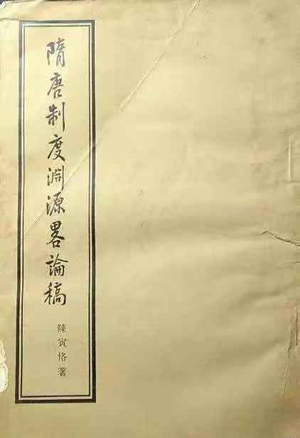 隋唐制度淵源畧論稿
陳寅恪著